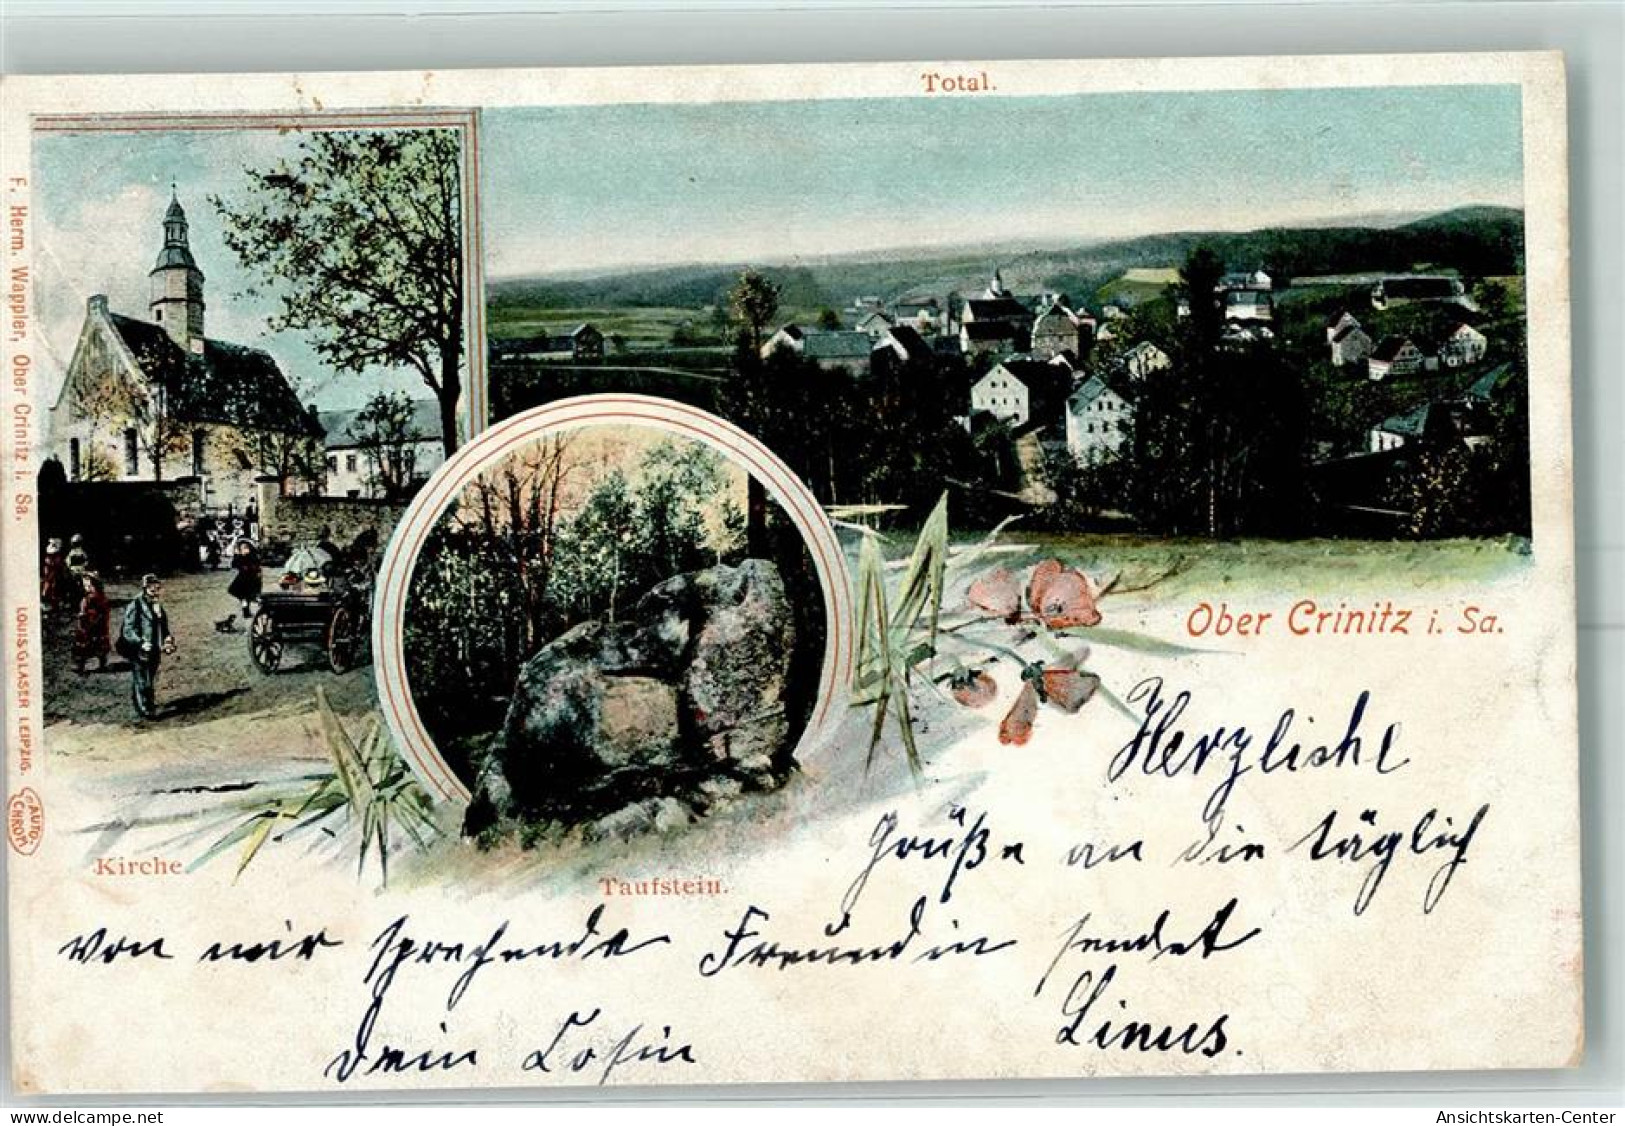 Total.
F. Herm. Wappler, Ober Crinitz i. Sa.
LOUIS GLASER LEIPZIG.
AUTO-
CHROM
Kirche
Taufstein.
Ober Crinitz i. Sa.
Herzliche
Grüße an die täglich
von mir sprechende Freundin sendet
dein Cosin Linus.
www.delcampe.net
Ansichtskarten-Center